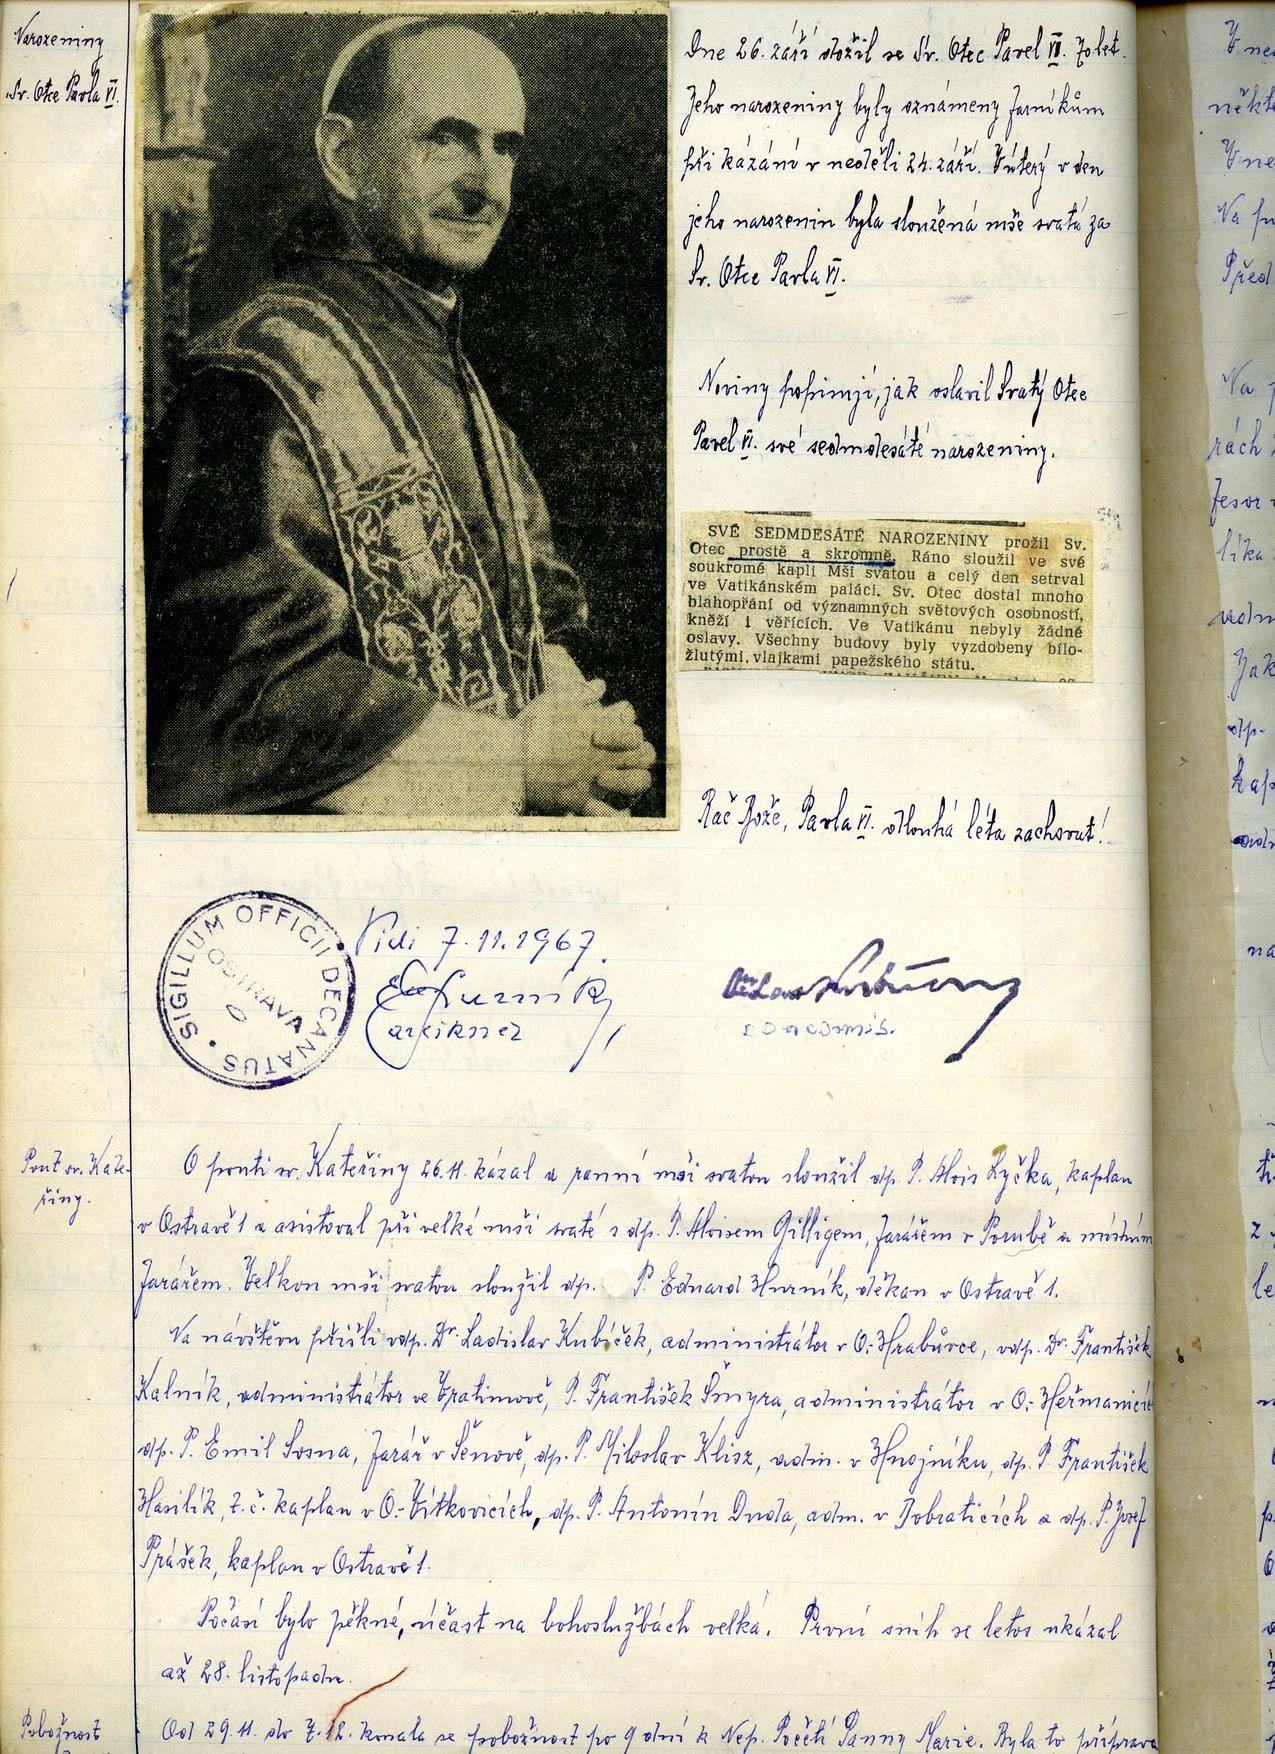 Narozeniny
Sv. Otce Pavla VI.
Dne 26. září dožil se Sv. Otec Pavel VI. 70 let.
Jeho narozeniny byly oznámeny farníkům
při kázání v neděli 24. září. V úterý v den
jeho narozenin byla sloužená mše svatá za
Sv. Otce Pavla VI.
Noviny popisují, jak oslavil Svatý Otec
Pavel VI. své sedmdesáté narozeniny.
SVÉ SEDMDESÁTÉ NAROZENINY prožil Sv.
Otec prostě a skromně. Ráno sloužil ve své
soukromé kapli Mši svatou a celý den setrval
ve Vatikánském paláci. Sv. Otec dostal mnoho
blahopřání od významných světových osobností,
kněží i věřících. Ve Vatikánu nebyly žádné
oslavy. Všechny budovy byly vyzdobeny bílo-
žlutými vlajkami papežského státu.
Rač Bože, Pavla VI. dlouhá léta zachovat!
SIGILLUM OFFICII DECANATUS
OSTRAVA
Vidi 7.11.1967.
Hurník
Pouť sv. Kate-
řiny.
O pouti sv. Kateřiny 26.11. kázal a ranní mši svatou sloužil dp. P. Alois Lyčka, kaplan
v Ostravě 1 a asistoval při velké mši svaté s dp. P. Aloisem Gilligem, farářem v Porubě a místním
farářem. Velkou mši svatou sloužil dp. P. Eduard Hurník, děkan v Ostravě 1.
Na návštěvu přišli vdp. Dr. Ladislav Kubíček, administrátor v O.-Hrabůvce, vdp. Dr. František
Kalník, administrátor ve Vratimově, P. František Šmyra, administrátor v O.-Heřmanicích
dp. P. Emil Sosna, farář v Šenově, dp. P. Miloslav Klisz, adm. v Hnojníku, dp. P. František
Hasilík, t. č. kaplan v O.-Vítkovicích, dp. P. Antonín Duda, adm. v Dobraticích a dp. P. Josef
Prášek, kaplan v Ostravě 1.
Počasí bylo pěkné, účast na bohoslužbách velká. První sníh se letos ukázal
až 28. listopadu.
Pobožnost
Od 29.11. do 7.12. konala se pobožnost po 9 dní k Nep. Početí Panny Marie. Byla to příprava